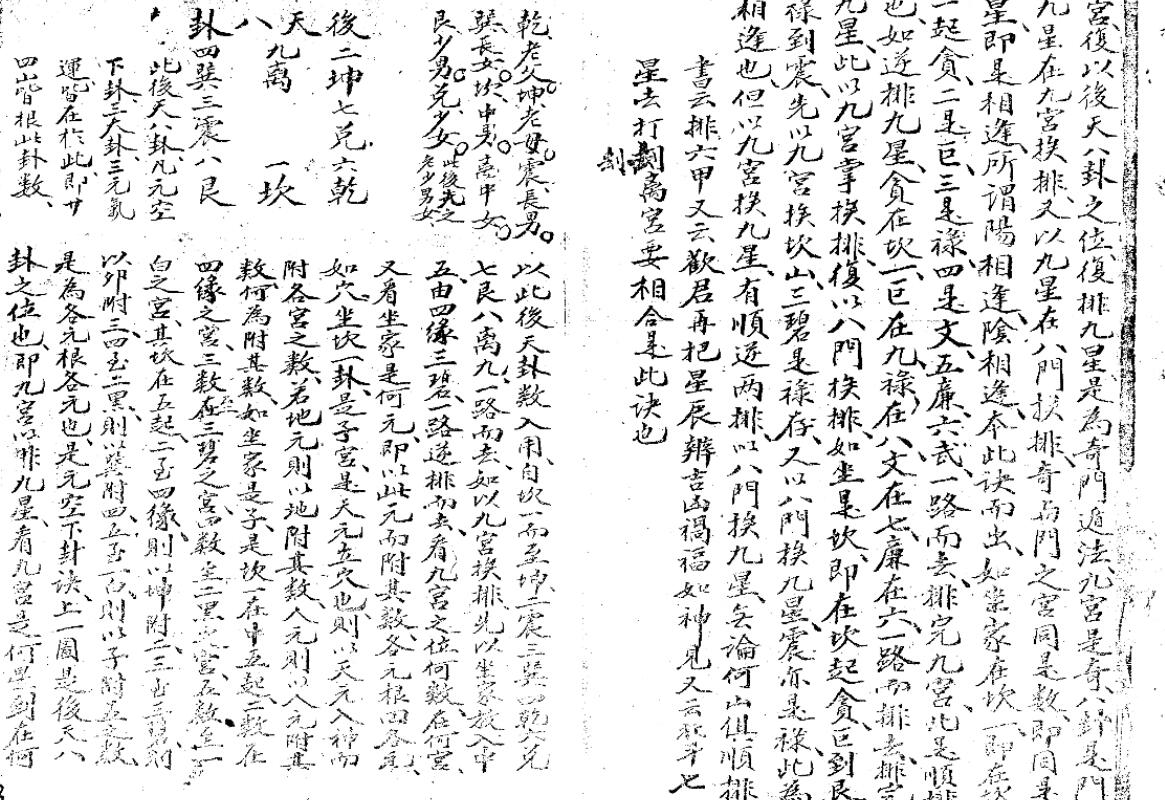 宮復以後天八卦之位復排九星是為奇門遁法九宮是奇八卦是門
九星在九宮挨排又以九星在八門挨排奇與門之宮同是數即同是
星即是相逢所謂陽相逢陰相逢本此訣而出如坐家在坎一即在坎
一起貪二是巨三是祿四是文五廉六武一路而去排完九宮此是順排
也如逆排九星貪在坎一巨在九祿在八文在七廉在六一路而排去排完
九星此以九宮掌挨排復以八門挨排如坐是坎即在坎起貪巨到艮
祿到震先以九宮挨坎山三碧是祿存又以八門挨九星震亦是祿此為
相逢也但以九宮挨九星有順逆兩排以八門挨九星無論何山俱順排
書云排六甲又云歡君再把星辰辨吉凶禍福如神見又云 斗七
星去打劫離宮要相合是此訣也
劫
乾老父坤老母震長男
巽長女坎中男離中女
艮少男兌少女此後天之
老少男女
後二坤七兌六乾
天九離 一坎
八
卦四巽三震八艮
此後天八卦凡元空
下卦三大卦三元氣
運皆在於此即廿
四山皆根此卦數
以此後天卦數入用自坎一而至坤二震三巽四乾六兌
七艮八離九一路而去如以九宮挨排先以坐家放入中
五由四緣三碧一路逆排而去看九宮之位何數在何宮
又看坐家是何元即以此元而附其數各元根四各其
如穴坐坎一卦是子宮是天元立穴也則以天元入神而
附各宮之數若地元則以地附其數人元則以人元附其
數何為附其數如坐家是子是坎一在中五起二數在
四緣之宮三數在三碧之宮四數坐二黑之宮五數坐一
白之宮其坎在五起二至四緣則以坤附二三至三碧則
以卯附三四至二黑則以巽附四五至一白則以子附五之數
是為各元根各元也是元空下卦訣上一圖是後天八
卦之位也即九宮以排九星看九宮是何星到在何